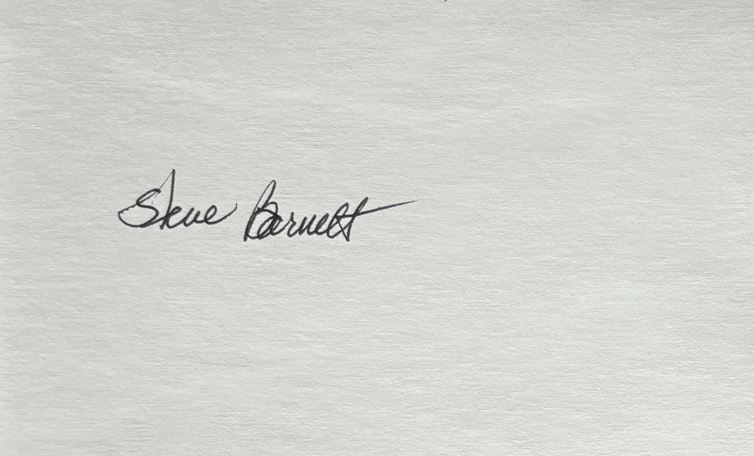 Steve Barnett